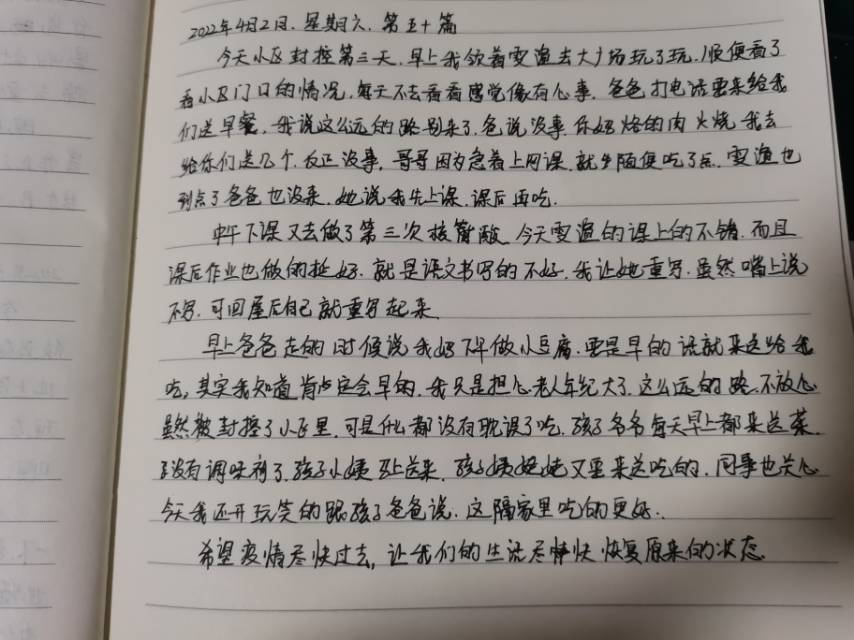 2022年4月2日.星期六.第五十篇
今天小区封控第三天.早上我领着雯渲去大广场玩了玩,顺便看了
看小区门口的情况.每天不去看看感觉像有心事.爸爸打电话要来给我
们送早餐.我说这么远的路别来了.爸说没事你妈烙的肉火烧我去
给你们送几个.反正没事.哥哥因为急着上网课.就先随便吃了点.雯渲也
到点了爸爸也没来.她说我先上课.课后再吃.
中午下课又去做了第三次核酸.今天雯渲的课上的不错.而且
课后作业也做的挺好.就是语文书写的不好.我让她重写.虽然嘴上说
不写.可回屋后自己就重写起来.
早上爸爸走的时候说我妈下午做小豆腐.要是早的话就来送给我
吃,其实我知道肯定会早的.我只是担心老人年纪大了.这么远的路.不放心
虽然被封控了小区里.可是什么都没有耽误了吃.孩子爷爷每天早上都来送菜.
没有调味料了.孩子小姨马上送来.孩子姨姥姥又要来送吃的.同事也关心
今天我还开玩笑的跟孩子爸爸说.这隔家里吃的更好.
希望疫情尽快过去,让我们的生活尽快恢复原来的状态.